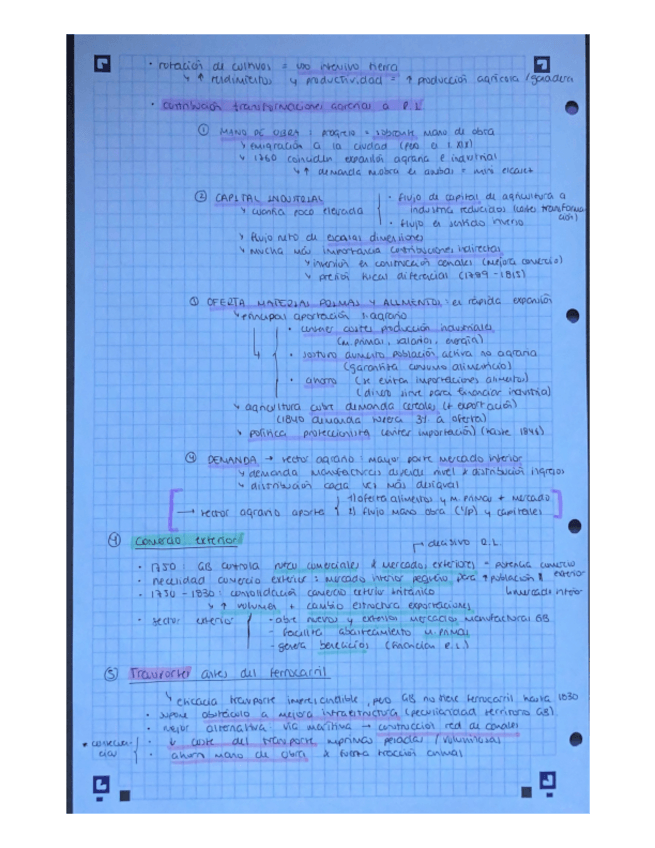 · rotación de cultivos = uso intensivo tierra
↳ ↑ rendimientos y productividad = ↑ producción agrícola / ganadera
· contribución transformaciones agrarias a R.I.
① MANO DE OBRA: progreso = sobrante mano de obra
↳ emigración a la ciudad (pero a s. XIX)
↳ 1760 coinciden expansión agraria e industrial
↳ ↑ demanda m.obra en ambas =
② CAPITAL INDUSTRIAL
↳ cuantía poco elevada
· flujo de capital de agricultura a
industria reducidos (costes transformación)
· flujo en sentido inverso
↳ flujo neto de escasas dimensiones
↳ mucha más importancia contribuciones indirectas
↳ inversión en construcción canales (mejora comercio)
↳ presión fiscal diferencial (1789-1815)
③ OFERTA MATERIAS PRIMAS Y ALIMENTOS: en rápida expansión
↳ principal aportación s. agrario
· contener costes producción industriales
(m. primas, salarios, energía)
· sostuvo aumento población activa no agraria
(garantiza consumo alimenticio)
· ahorro (se evitan importaciones alimentos)
(dinero sirve para financiar industria)
↳ agricultura cubre demanda cereales (+ exportación)
(1840 demanda supera 3% a oferta)
↳ política proteccionista (evitar importación) (hasta 1846)
④ DEMANDA → sector agrario: mayor parte mercado interior
↳ demanda manufacturas depende nivel & distribución ingresos
↳ distribución cada vez más desigual
→ sector agrario aporta
1) oferta alimentos y m. primas + mercado
2) flujo mano obra (s/p) y capitales
④ Comercio exterior
→ decisivo R.I.
· 1750: GB controla redes comerciales & mercados exteriores = potencia comercio exterior
· necesidad comercio exterior: mercado interior pequeño para ↑ población &
↳ mercado interior
· 1750-1830: consolidación comercio exterior británico
↳ ↑ volumen + cambio estructura exportaciones
· sector exterior
- abre nuevos y extensos mercados manufacturas GB
- facilita abastecimiento m. primas
- genera beneficios (financian R.I.)
⑤ Transportes antes del ferrocarril
↳ eficacia transporte imprescindible, pero GB no tiene ferrocarril hasta 1830
· supone obstáculo a mejora infraestructura (peculiaridad territorio GB)
· mejor alternativa vía marítima → construcción red de canales
* consecuencias
· ↓ coste del transporte m.primas pesadas / voluminosas
· ahorra mano de obra & fuerza tracción animal